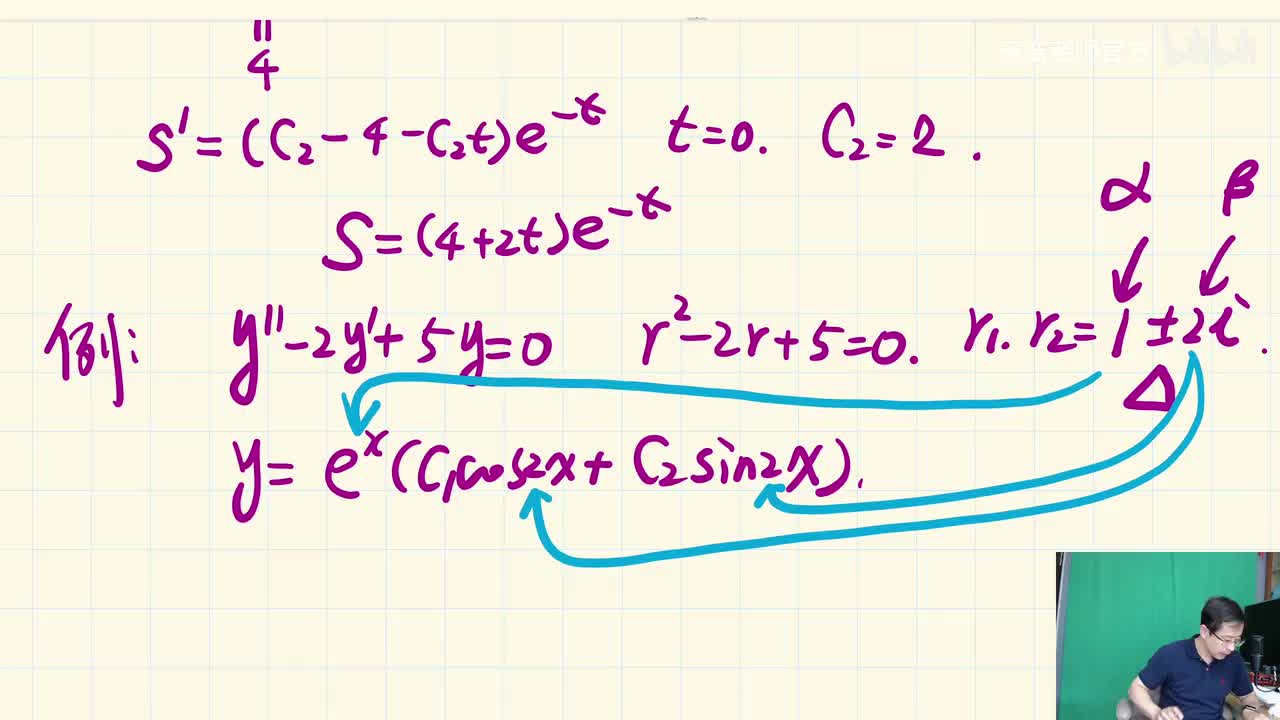 "
4
S' = (C₂ - 4 - C₂t)e^{-t} t=0. C₂=2.
α β
S = (4+2t)e^{-t}
例: y" - 2y' + 5y = 0 r² - 2r + 5 = 0. r₁. r₂ = 1 ± 2i.
Δ
y = e^x (C₁cos2x + C₂sin2x).